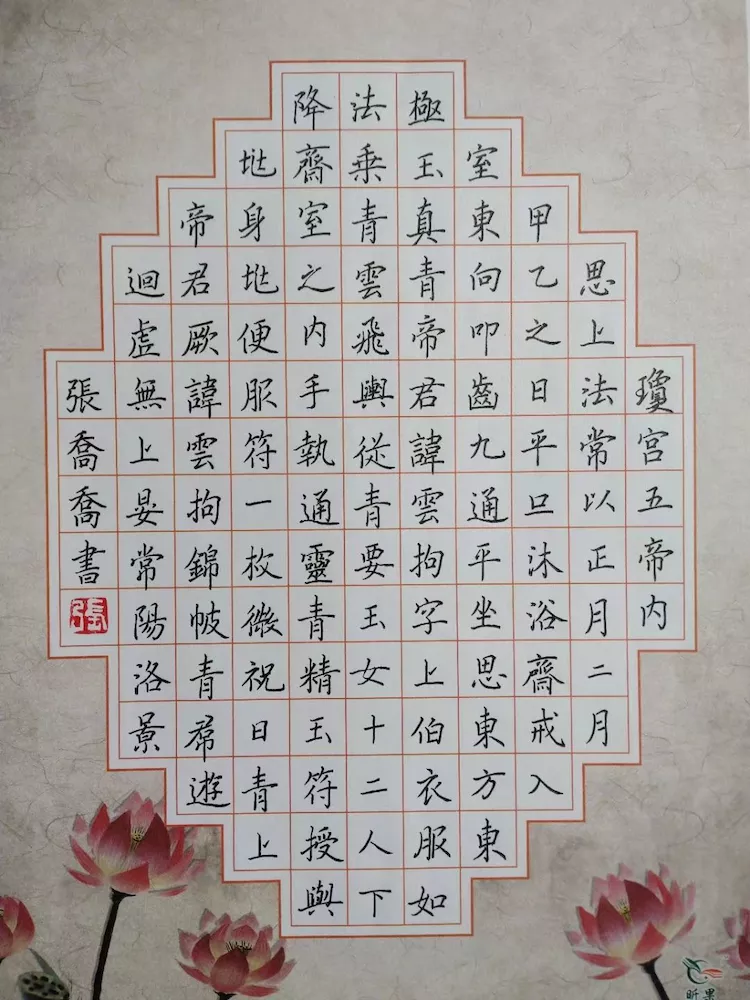 瓊宮五帝內
思上法常以正月二月
甲乙之日平旦沐浴齋戒入
室東向叩齒九通平坐思東方東
極玉真青帝君諱雲拘字上伯衣服如
法乗青雲飛輿從青要玉女十二人下
降齋室之内手執通靈青精玉符授與
垗身垗便服符一枚微祝曰青上
帝君厥諱雲拘錦帔青帬遊
迴虛無上晏常陽洛景
張喬喬書
張